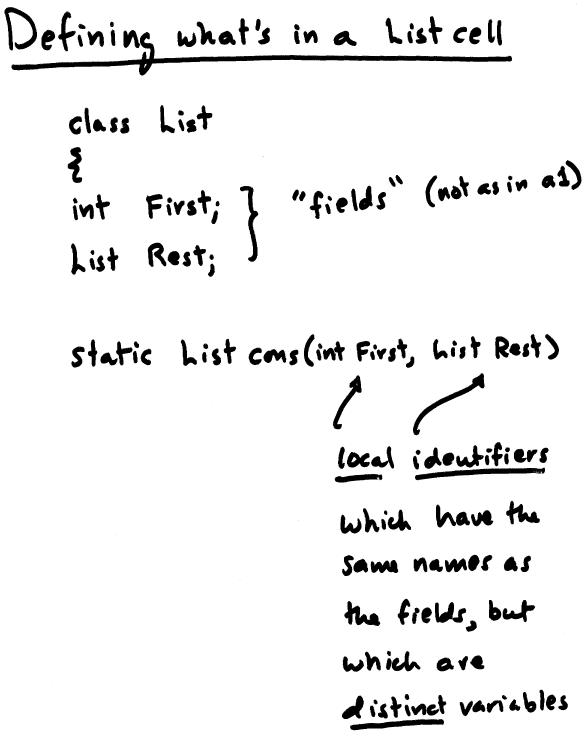 Defining what's in a List cell
class List
{
int First; } "fields" (not as in a1)
List Rest;
static List cons(int First, List Rest)
local identifiers
which have the
same names as
the fields, but
which are
distinct variables